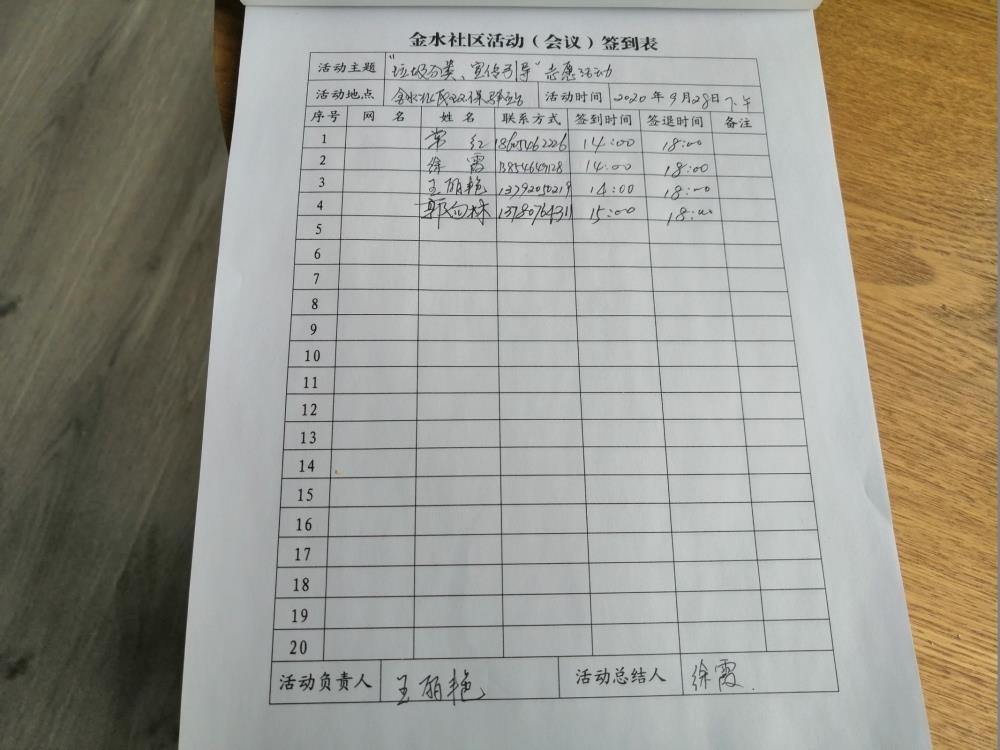 金水社区活动（会议）签到表
活动主题 "垃圾分类、宣传引导"志愿活动
活动地点 金水 活动时间 2020年9月28日下午
序号 网名 姓名 联系方式 签到时间 签退时间 备注
1 常红 18605462226 14:00 18:00
2 徐霞 13854649128 14:00 18:00
3 王丽艳 13792050219 14:00 18:00
4 郭向林 15:00 18:00
5
6
7
8
9
10
11
12
13
14
15
16
17
18
19
20
活动负责人 王丽艳 活动总结人 徐霞